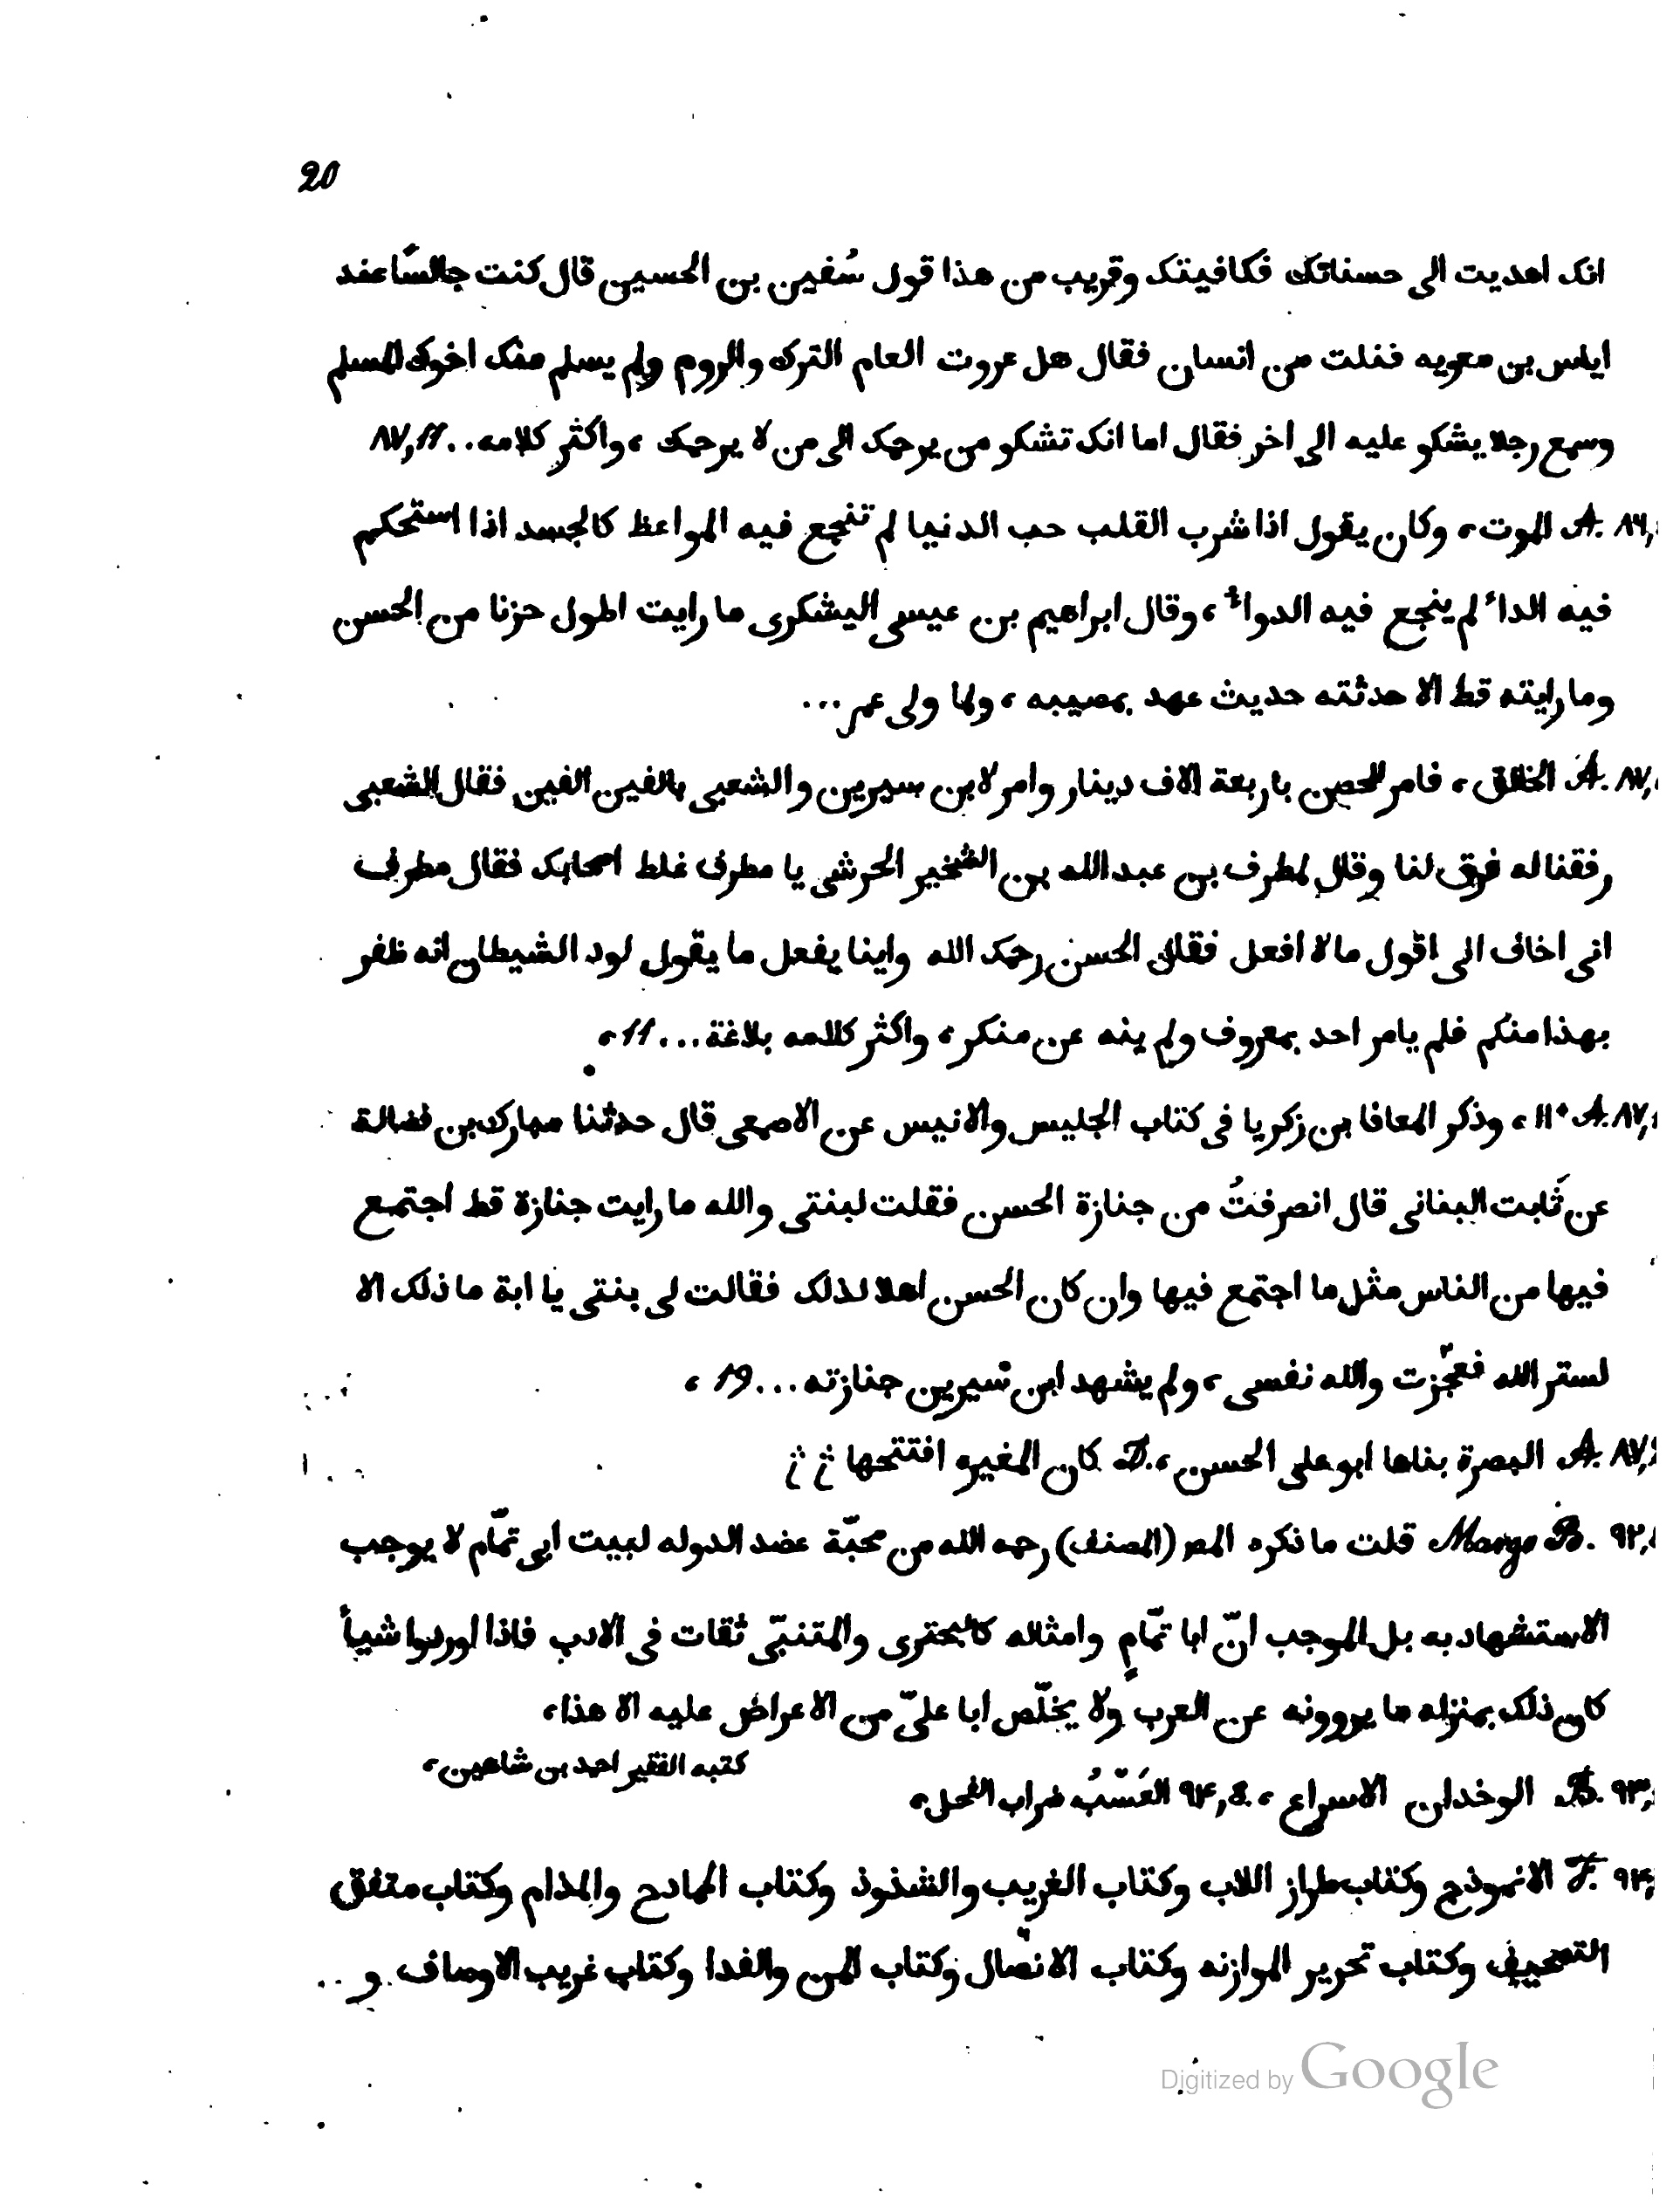 20
انك اهديت الى حسناتك فكافيتك وقريب من هذا قول سُفين بن الحسين قال كنت جالسًا عند
اياس بن معويه فنلت من انسان فقال هل غزوت العام الترك والروم ولم يسلم منك اخوك المسلم
وسمع رجلا يشكو عليه الى اخر فقال اما انك تشكو من يرحمك الى من لا يرحمك ، واكثر كلامه.. ٨٧,11
٨٦, A. الموت ، وكان يقول اذا شرب القلب حب الدنيا لم تنجع فيه المواعظ كالجسد اذا استحكم
فيه الداء لم ينجع فيه الدواء ، وقال ابراهيم بن عيسى اليشكرى ما رايت اطول حزنا من الحسن
وما رايته قط الا حدثته حديث عهد بمصيبه ، ولما ولى عمر ...
٨٧, A. الخالق ، فامر للحصن باربعة الاف دينار وامر لابن سيرين والشعبى بالفين الفين فقال الشعبى
رفقنا له فرق لنا وقال لمطرف بن عبد الله بن الشخير الحرشى يا مطرف غلط اصحابك فقال مطرف
انى اخاف الى اقول ما لا افعل فقال الحسن رحمك الله واينا يفعل ما يقول لود الشيطان انه ظفر
بهذا منكم فلم يامر احد بمعروف ولم ينه عن منكر ، واكثر كلامه بلاغة ... 11 ،
٨٧, A. 11* ، وذكر المعافا بن زكريا فى كتاب الجليس والانيس عن الاصمعى قال حدثنا مبارك بن فضالة
عن ثَابت البنانى قال انصرفتُ من جنازة الحسن فقلت لبنتى والله ما رايت جنازة قط اجتمع
فيها من الناس مثل ما اجتمع فيها وان كان الحسن اهلا لذلك فقالت لى بنتى يا ابة ما ذلك الا
لستر الله فعجّزت والله نفسى ، ولم يشهد ابن سيرين جنازته ... 19 ،
٨٧, A. البصرة بناها ابو على الحسن ، D. كان المغيره افتتحها
٩٢, Margo B. قلت ما ذكره المص (المصنف) رحمه الله من محبّة عضد الدوله لبيت ابى تمّام لا يوجب
الاستشهاد به بل الموجب انّ ابا تمّامٍ وامثاله كالبحترى والمتنبّى ثقات فى الادب فاذا اوردوا شيأ
كان ذلك بمنزله ما يروونه عن العرب ولا يخلّص ابا علىّ من الاعراض عليه الا هذا ،
كتبه الفقير احمد بن شاهين ،
٩٣, B. الوخدان الاسراع ، ٩٤,8. العَسْبُ ضراب الفحل ،
٩٤, F. الانموذج وكتاب طراز اللاب وكتاب الغريب والشذوذ وكتاب الممادح والمذام وكتاب متفق
التصحيف وكتاب تحرير الموازنه وكتاب الاتصال وكتاب المن والفدا وكتاب غريب الاوصاف و ..
Digitized by Google